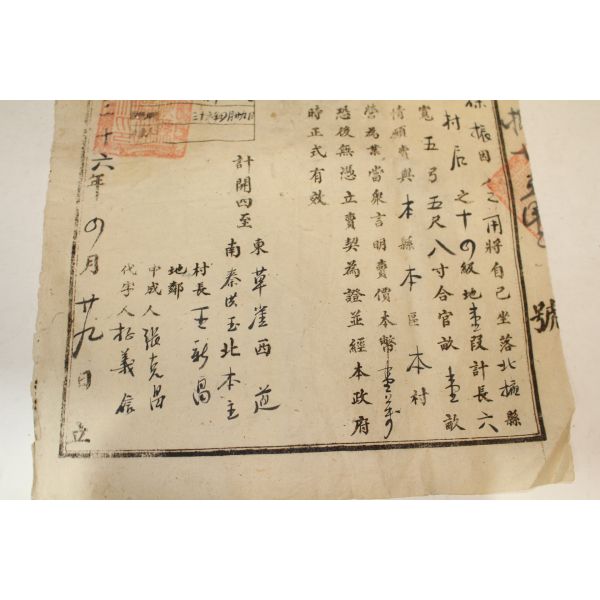 號
振因之用將自己坐落北掖縣
村后之十四級地壹段計長六
寬五弓五尺八寸合官畝壹畝
情願賣與本縣本區本村
營為業當衆言明賣價本幣壹萬
恐後無憑立賣契為證並經本政府
時正式有效
計開四至
東草崖西道
南秦洪玉北本主
村長王新昌
地鄰
中成人張克昌
代字人 義信
二十六年四月廿九日立
三十六年四月廿九日